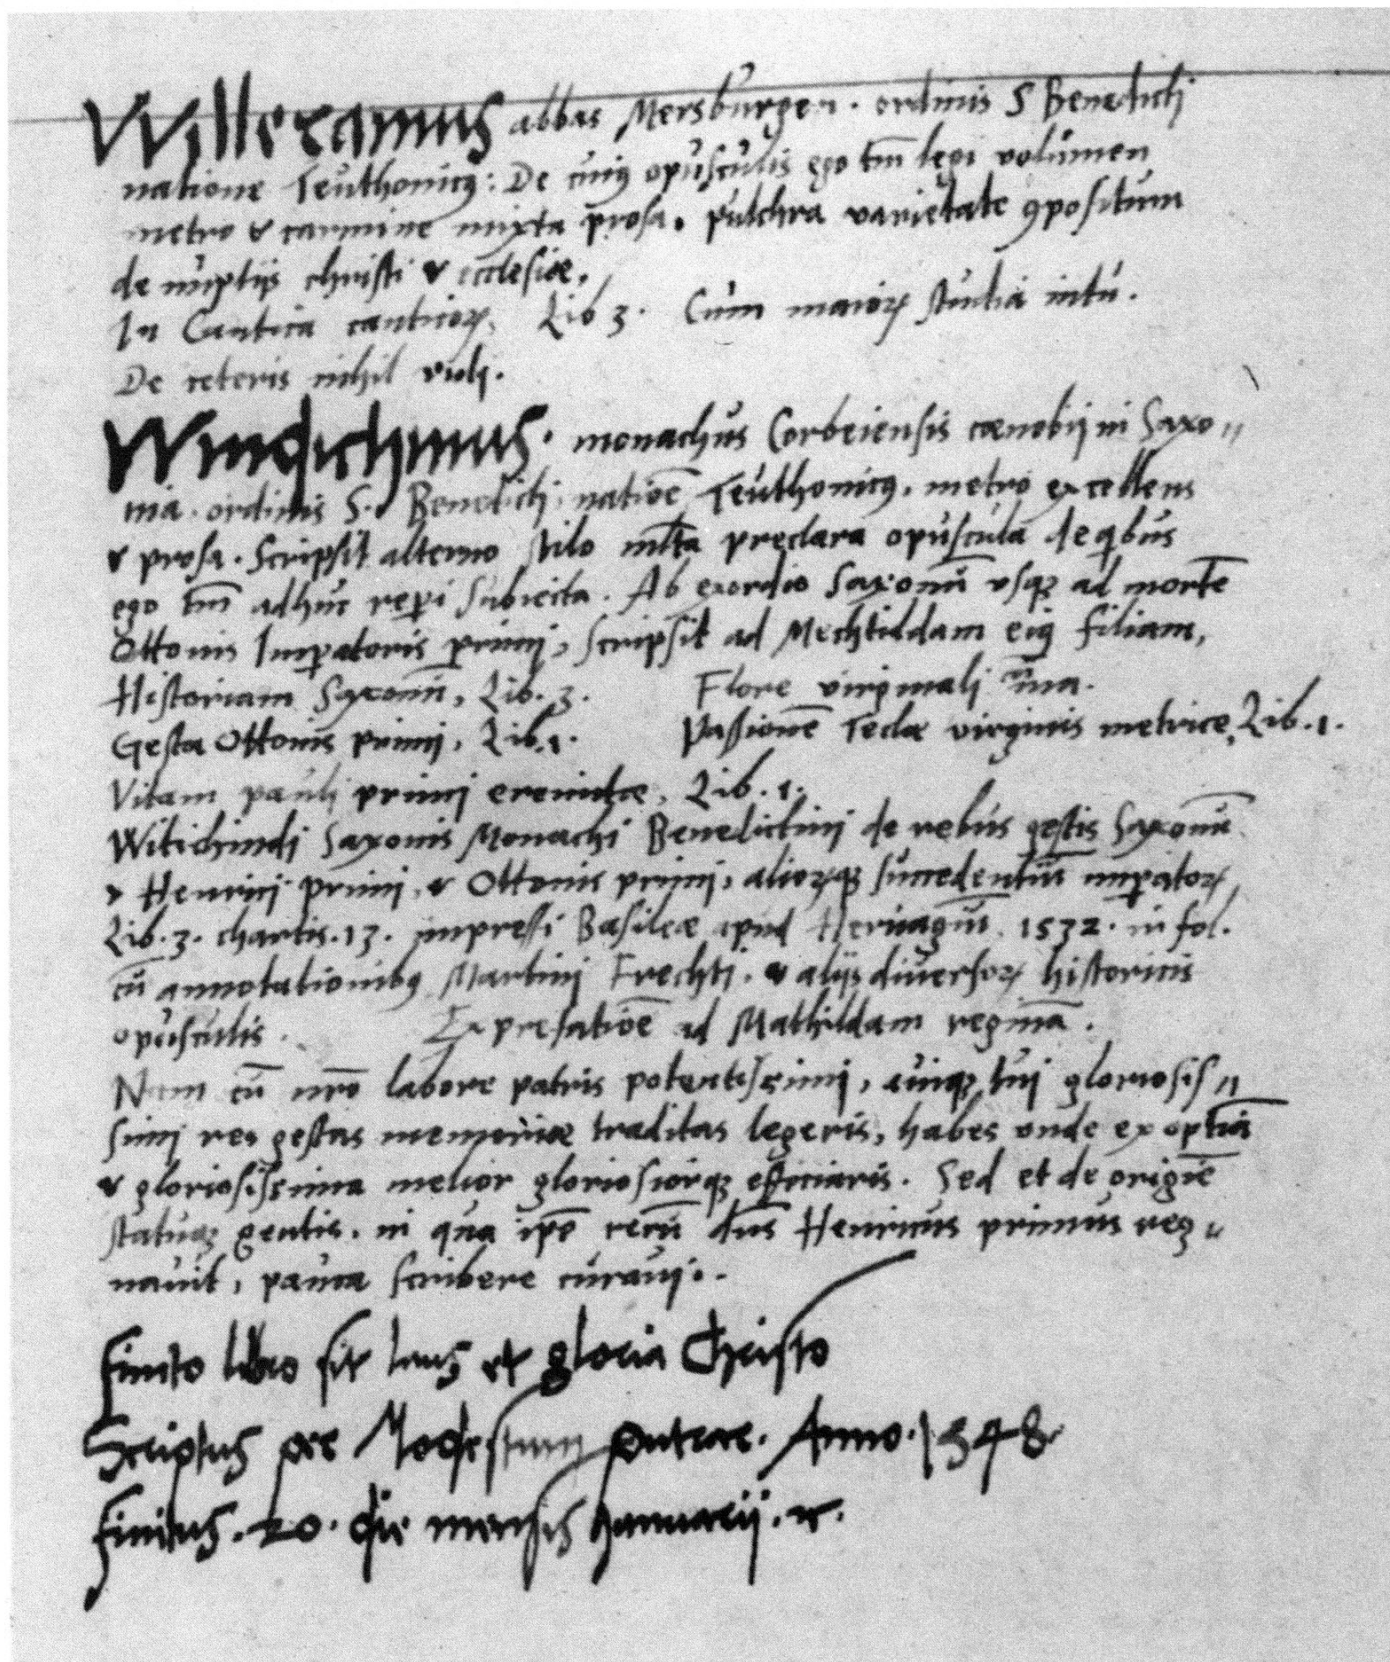 Willeramus abbas Mersburgen. ordinis S Benedicti
natione Teuthonicꝰ: De cuiꝰ opusculis ego tm̄ legi volumen
metro & carmine mixta prosa, pulchra varietate ꝯpositum
de nuptijs christi & ecclesiæ.
In Cantica canticoꝝ, Lib 3. Cum maioꝝ studia intu.
De ceteris nihil vidi.
Windichinus. monachus Corbeiensis cœnobij in Saxo〃
nia. ordinis S. Benedicti, natiōe Teuthonicꝰ, metro excellens
& prosa. Scripsit alterno stilo mlta preclara opuscula de qibus
ego tm̄ adhuc reperi subiecta. Ab exordio Saxonū vsqꝫ ad mortē
Ottonis Imperatoris primi, scripsit ad Mechtildam eiꝰ filiam,
Historiam Saxonū, Lib. 3. Flore virginali
Gesta Ottonis primi, Lib. 1. Passionē Teclæ virginis metrice, Lib. 1.
Vitam pauli primi eremitæ, Lib. 1.
Witichindi Saxonis Monachi Benedictini de rebus gestis Saxonū
& Henrici primi, & Ottonis primi, alioꝝqꝫ succedentiū imperatoꝝ,
Lib. 3. chartis. 13. impressi Basileæ apud Heruagiū. 1532. in fol.
cū annotationibꝰ Martini Frechti. & alijs diuersoꝝ historicis
opusculis. Ex prefatiōe ad Mathildam reginā.
Nam cū nrō labore patris potentissimi, auiqꝫ tui gloriosis〃
simi res gestas memoriæ traditas legeris, habes vnde ex optīa
& gloriosissima melior gloriosiorqꝫ efficiaris. Sed et de origīe
statuqꝫ gentis, in qua ipē rerū dn̄s Henricus primus reg〃
nauit, pauca scribere curaui.
finito libro sit laus et gloria Christo
Scriptus per Modestum puteae. Anno. 1548.
finitus. 20. die mensis Januarij. &.